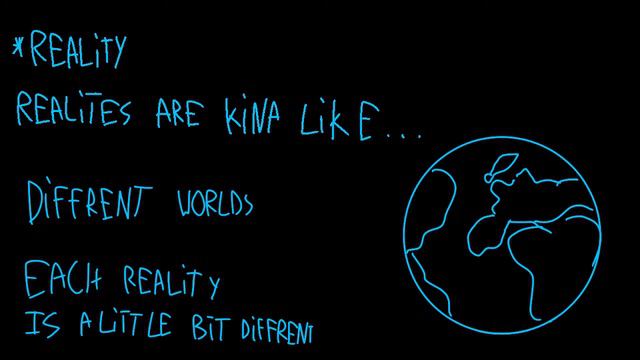 *REALITY
REALITES ARE KINA LIKE...
DIFFRENT WORLDS
EACH REALITY
IS A LITTLE BIT DIFFRENT